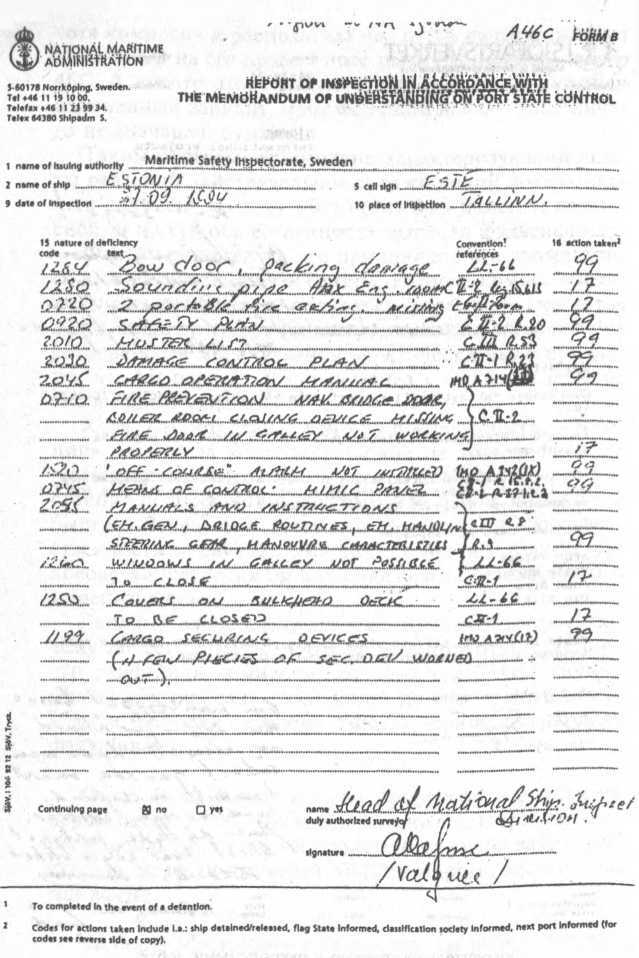 A46C FORM B
NATIONAL MARITIME
ADMINISTRATION
S-60178 Norrköping, Sweden.
Tel +46 11 19 10 00.
Telefax +46 11 23 99 34.
Telex 64380 Shipadm S.
REPORT OF INSPECTION IN ACCORDANCE WITH
THE MEMORANDUM OF UNDERSTANDING ON PORT STATE CONTROL
1 name of issuing authority Maritime Safety Inspectorate, Sweden
2 name of ship ESTONIA 5 call sign ESTE
9 date of inspection 10 place of inspection TALLINN.
15 nature of deficiency Convention¹ 16 action taken²
code text references
1284 Bow door, packing damage LL-66 99
1280 Sounding pipe Aux Eng. room 17
0720 2 portable fire exting. missing 17
0920 SAFETY PLAN C II-2 R.20 99
2010 MUSTER LIST C III R.53 99
2030 DAMAGE CONTROL PLAN C II-1 R.23 99
2045 CARGO OPERATION MANUAL IMO A714 99
0710 FIRE PREVENTION NAV. BRIDGE DOOR,
BOILER ROOM CLOSING DEVICE MISSING C II-2
FIRE DOOR IN GALLEY NOT WORKING
PROPERLY 17
1520 "OFF-COURSE" ALARM NOT INSTALLED IMO A342(IX) 99
0745 MEANS OF CONTROL. MIMIC PANEL 99
2055 MANUALS AND INSTRUCTIONS
(EM.GEN, BRIDGE ROUTINES, EM. HANDLIN CIII R8
STEERING GEAR, MANOUVRE CHARACTERISTIES R.9 99
1260 WINDOWS IN GALLEY NOT POSSIBLE LL-66
TO CLOSE C II-1 17
1250 COVERS ON BULKHEAD DECK LL-66
TO BE CLOSED C II-1 17
1199 CARGO SECURING DEVICES IMO A714(17) 99
(A FEW PIECIES OF SEC. DEV WORNED
OUT).
Continuing page no yes
name Head of National Ship. Inspect
duly authorized surveyor Division.
signature
1 To completed in the event of a detention.
2 Codes for actions taken include i.a.: ship detained/released, flag State informed, classification society informed, next port informed (for
codes see reverse side of copy).